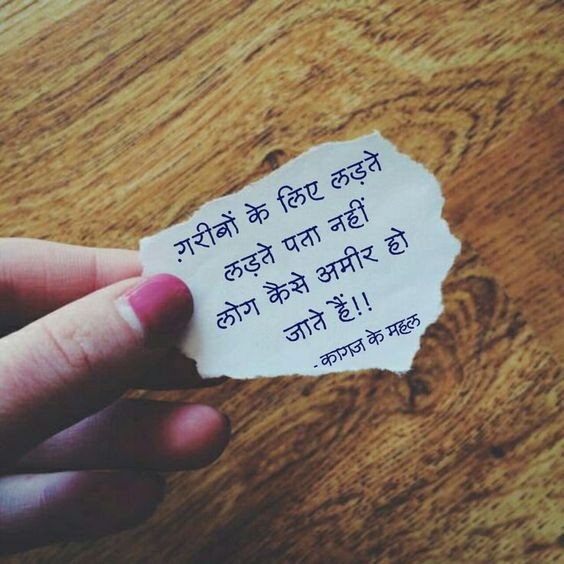 ग़रीबों के लिए लड़ते
लड़ते पता नहीं
लोग कैसे अमीर हो
जाते हैं!!
- कागज के महल